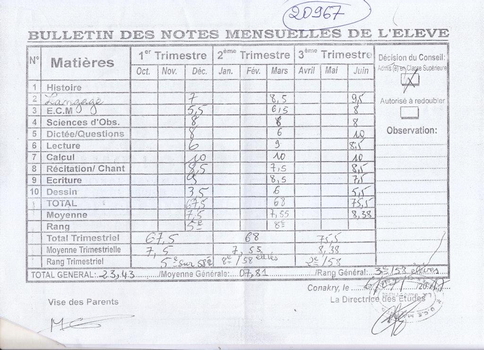 20967
BULLETIN DES NOTES MENSUELLES DE L'ELEVE
N° Matières 1er Trimestre 2ème Trimestre 3ème Trimestre Décision du Conseil:
Oct. Nov. Déc. Jan. Fév. Mars Avril Mai Juin Admis(e) en Classe Supérieure
1 Histoire
2 Langage 7 8,5 9,5
Autorisé à redoubler
3 E.C.M 5,5 6,5 8
4 Sciences d'Obs. 8 8 8
5 Dictée/Questions 8 6 10
Observation:
6 Lecture 6 9 8,5
7 Calcul 10 10 10
8 Récitation/ Chant 8,5 7,5 8,5
9 Ecriture 8,5 7,5
10 Dessin 3,5 6 5,5
TOTAL 67,5 68 75,5
Moyenne 7,5 7,55 8,38
Rang 5e 8e
Total Trimestriel 67,5 68 75,5
Moyenne Trimestrielle 7,5 7,55 8,38
Rang Trimestriel 5e sur 58 8e/58 élèves 3e/58
TOTAL GENERAL: 23,43 /Moyenne Générale: 07,81 /Rang Général: 3e/58 élèves
Conakry, le
Vise des Parents La Directrice des Etudes